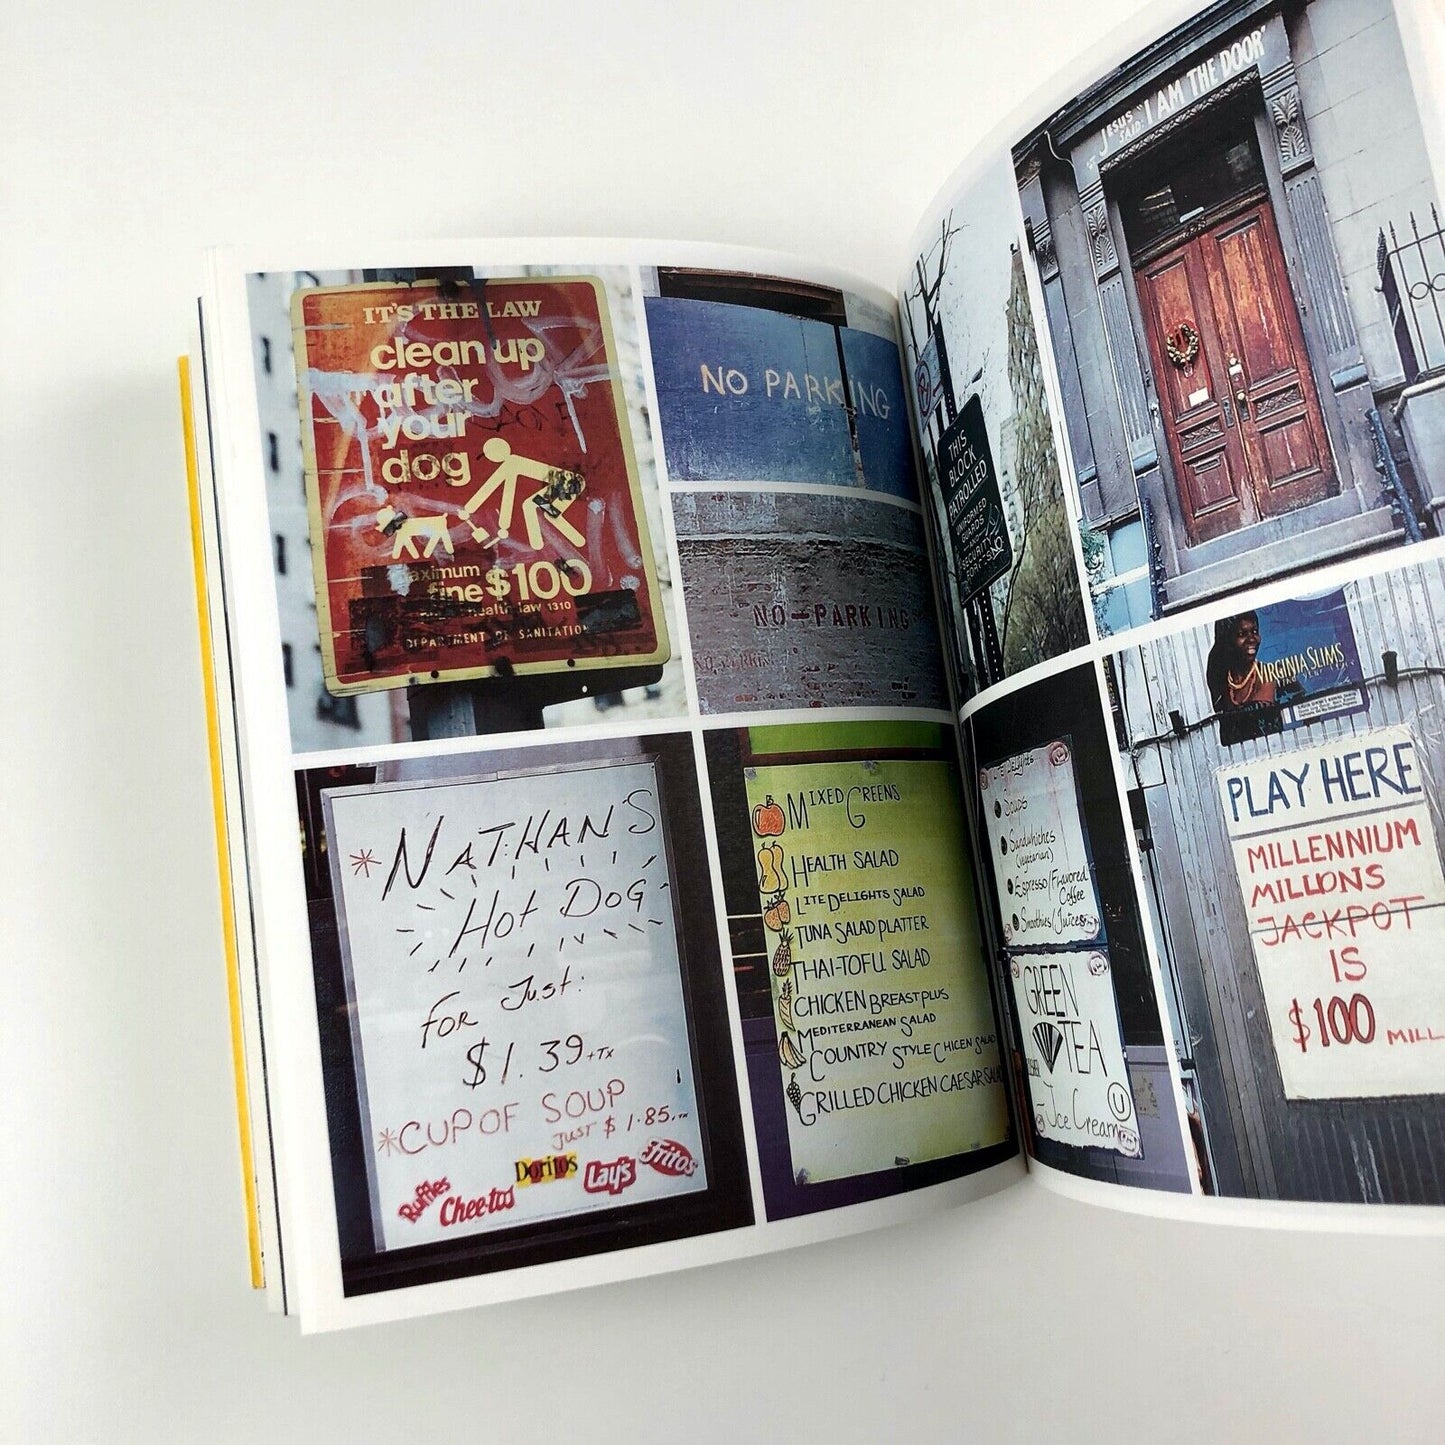 IT'S THE LAW
clean up
after
your
dog
maximum
fine $100
health law 1310
DEPARTMENT OF SANITATION
NO PARKING
NO-PARKING
NATHAN'S
Hot DOG
FOR JUST:
$1.39+TX
CUP OF SOUP
JUST $1.85.TX
Ruffles
Chee-tos
Doritos
Lay's
Fritos
MIXED GREENS
HEALTH SALAD
LITE DELIGHTS SALAD
TUNA SALAD PLATTER
THAI-TOFU SALAD
CHICKEN BREAST PLUS
MEDITERRANEAN SALAD
COUNTRY STYLE CHICEN SALAD
GRILLED CHICKEN CAESAR SALAD
THIS
BLOCK
PATROLLED
UNIFORMED
GUARDS
JESUS
SAID: "I AM THE DOOR"
SOUPS
Sandwhiches
(vegetarian)
Espresso/Flavored
Coffee
Smoothies/Juices
GREEN
TEA
Ice Cream
U
VIRGINIA SLIMS
PLAY HERE
MILLENNIUM
MILLIONS
JACKPOT
IS
$100 MILL